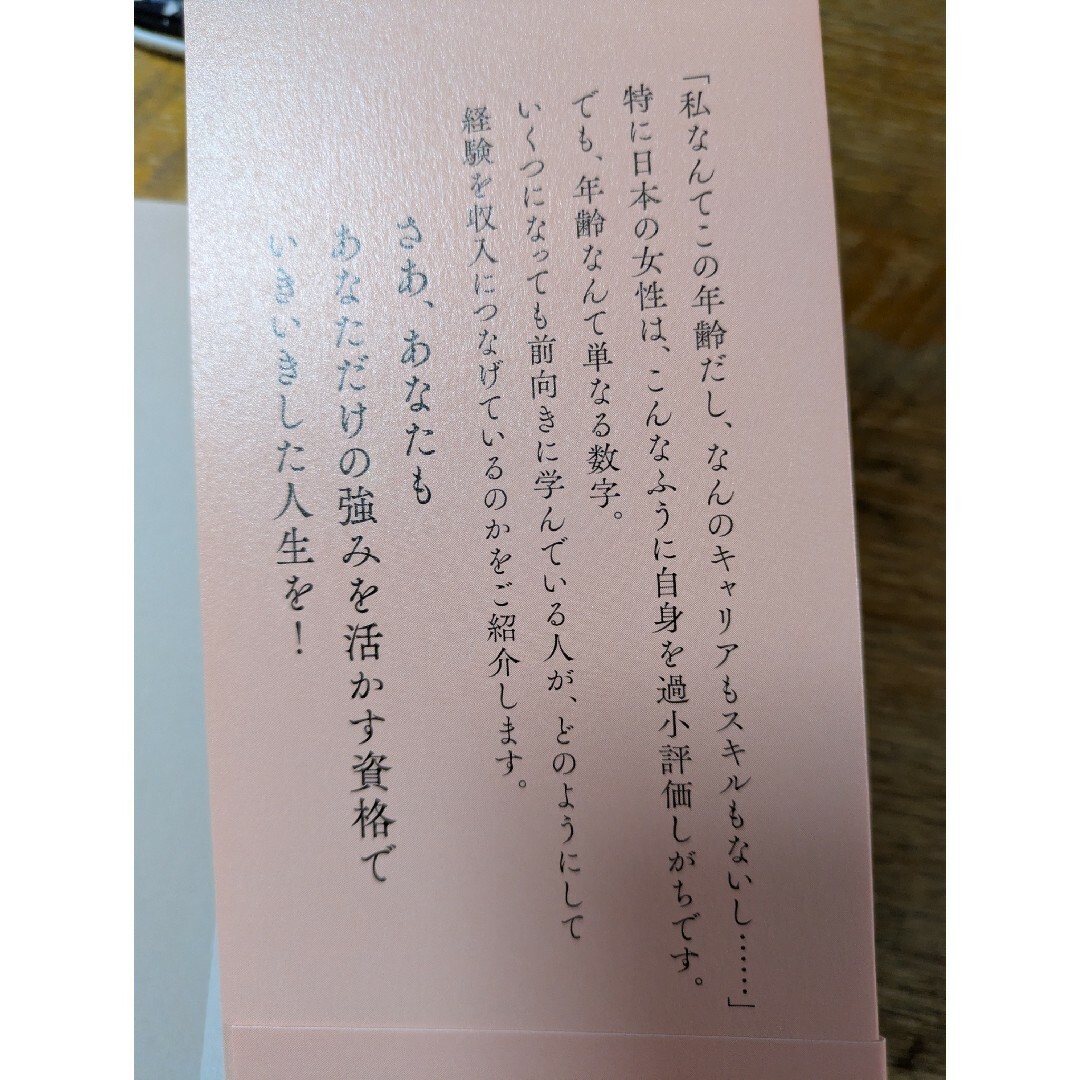 「私なんてこの年齢だし、なんのキャリアもスキルもないし……」
特に日本の女性は、こんなふうに自身を過小評価しがちです。
でも、年齢なんて単なる数字。
いくつになっても前向きに学んでいる人が、どのようにして
経験を収入につなげているのかをご紹介します。
さあ、あなたも
あなただけの強みを活かす資格で
いきいきした人生を！